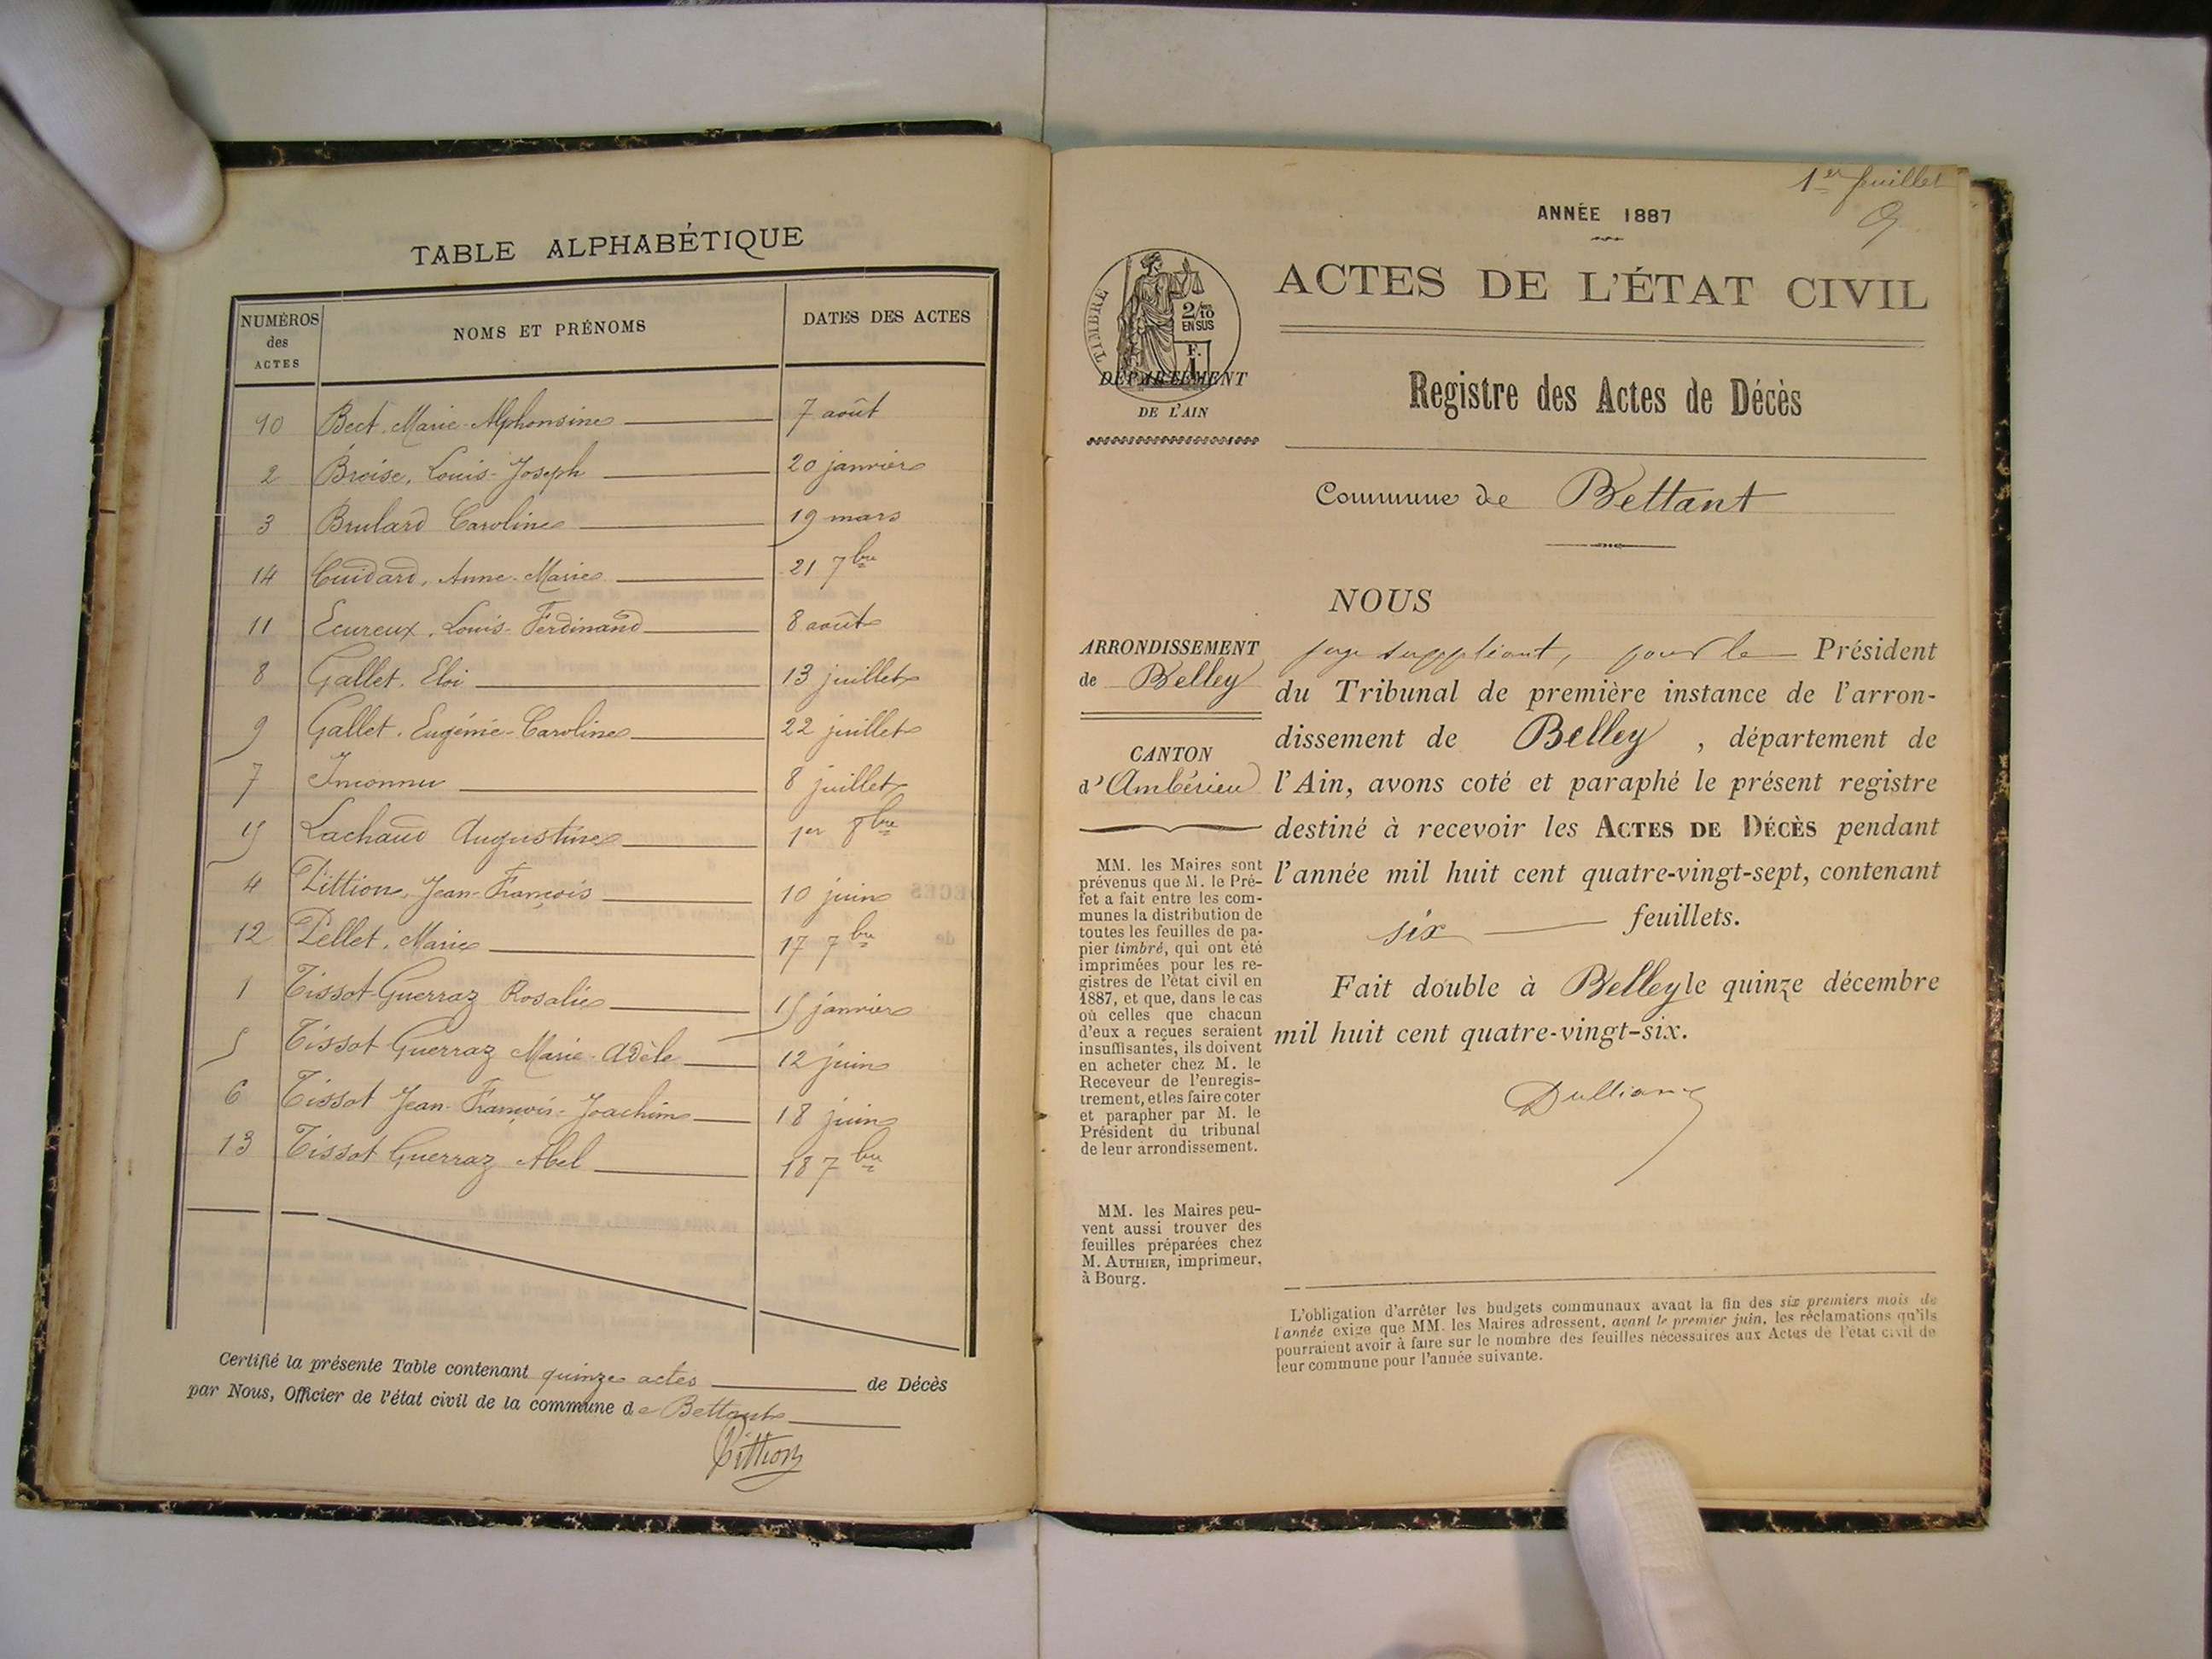 TABLE ALPHABÉTIQUE
NUMÉROS des ACTES NOMS ET PRÉNOMS DATES DES ACTES
10 Bect, Marie-Alphonsine 7 août
2 Broise, Louis-Joseph 20 janvier
3 Brulard Caroline 19 mars
14 Cuidard, Anne-Marie 21 7bre
11 Ecureux, Louis-Ferdinand 8 août
8 Gallet, Eloi 13 juillet
9 Gallet, Eugénie-Caroline 22 juillet
7 Inconnu 8 juillet
15 Lachaud Augustine 1er 8bre
4 Pittion, Jean-François 10 juin
12 Pellet, Marie 17 7bre
1 Tissot-Guerraz Rosalie 15 janvier
5 Tissot-Guerraz Marie-Adèle 12 juin
6 Tissot Jean-François-Joachim 18 juin
13 Tissot Guerraz Abel 18 7bre
Certifié la présente Table contenant quinze actes de Décès
par Nous, Officier de l'état civil de la commune de Bettant
Pittion
1er feuillet
ANNÉE 1887
TIMBRE
2/10
EN SUS
F.
DÉPARTEMENT
DE L'AIN
ACTES DE L'ÉTAT CIVIL
Registre des Actes de Décès
Commune de Bettant
ARRONDISSEMENT
de Belley
CANTON
d'Ambérieu
MM. les Maires sont
prévenus que M. le Pré-
fet a fait entre les com-
munes la distribution de
toutes les feuilles de pa-
pier timbré, qui ont été
imprimées pour les re-
gistres de l'état civil en
1887, et que, dans le cas
où celles que chacun
d'eux a reçues seraient
insuffisantes, ils doivent
en acheter chez M. le
Receveur de l'enregis-
trement, et les faire coter
et parapher par M. le
Président du tribunal
de leur arrondissement.
MM. les Maires peu-
vent aussi trouver des
feuilles préparées chez
M. AUTHIER, imprimeur,
à Bourg.
NOUS
juge suppléant, pour le Président
du Tribunal de première instance de l'arron-
dissement de Belley, département de
l'Ain, avons coté et paraphé le présent registre
destiné à recevoir les ACTES DE DÉCÈS pendant
l'année mil huit cent quatre-vingt-sept, contenant
six feuillets.
Fait double à Belley le quinze décembre
mil huit cent quatre-vingt-six.
L'obligation d'arrêter les budgets communaux avant la fin des six premiers mois de
l'année exige que MM. les Maires adressent, avant le premier juin, les réclamations qu'ils
pourraient avoir à faire sur le nombre des feuilles nécessaires aux Actes de l'état civil de
leur commune pour l'année suivante.